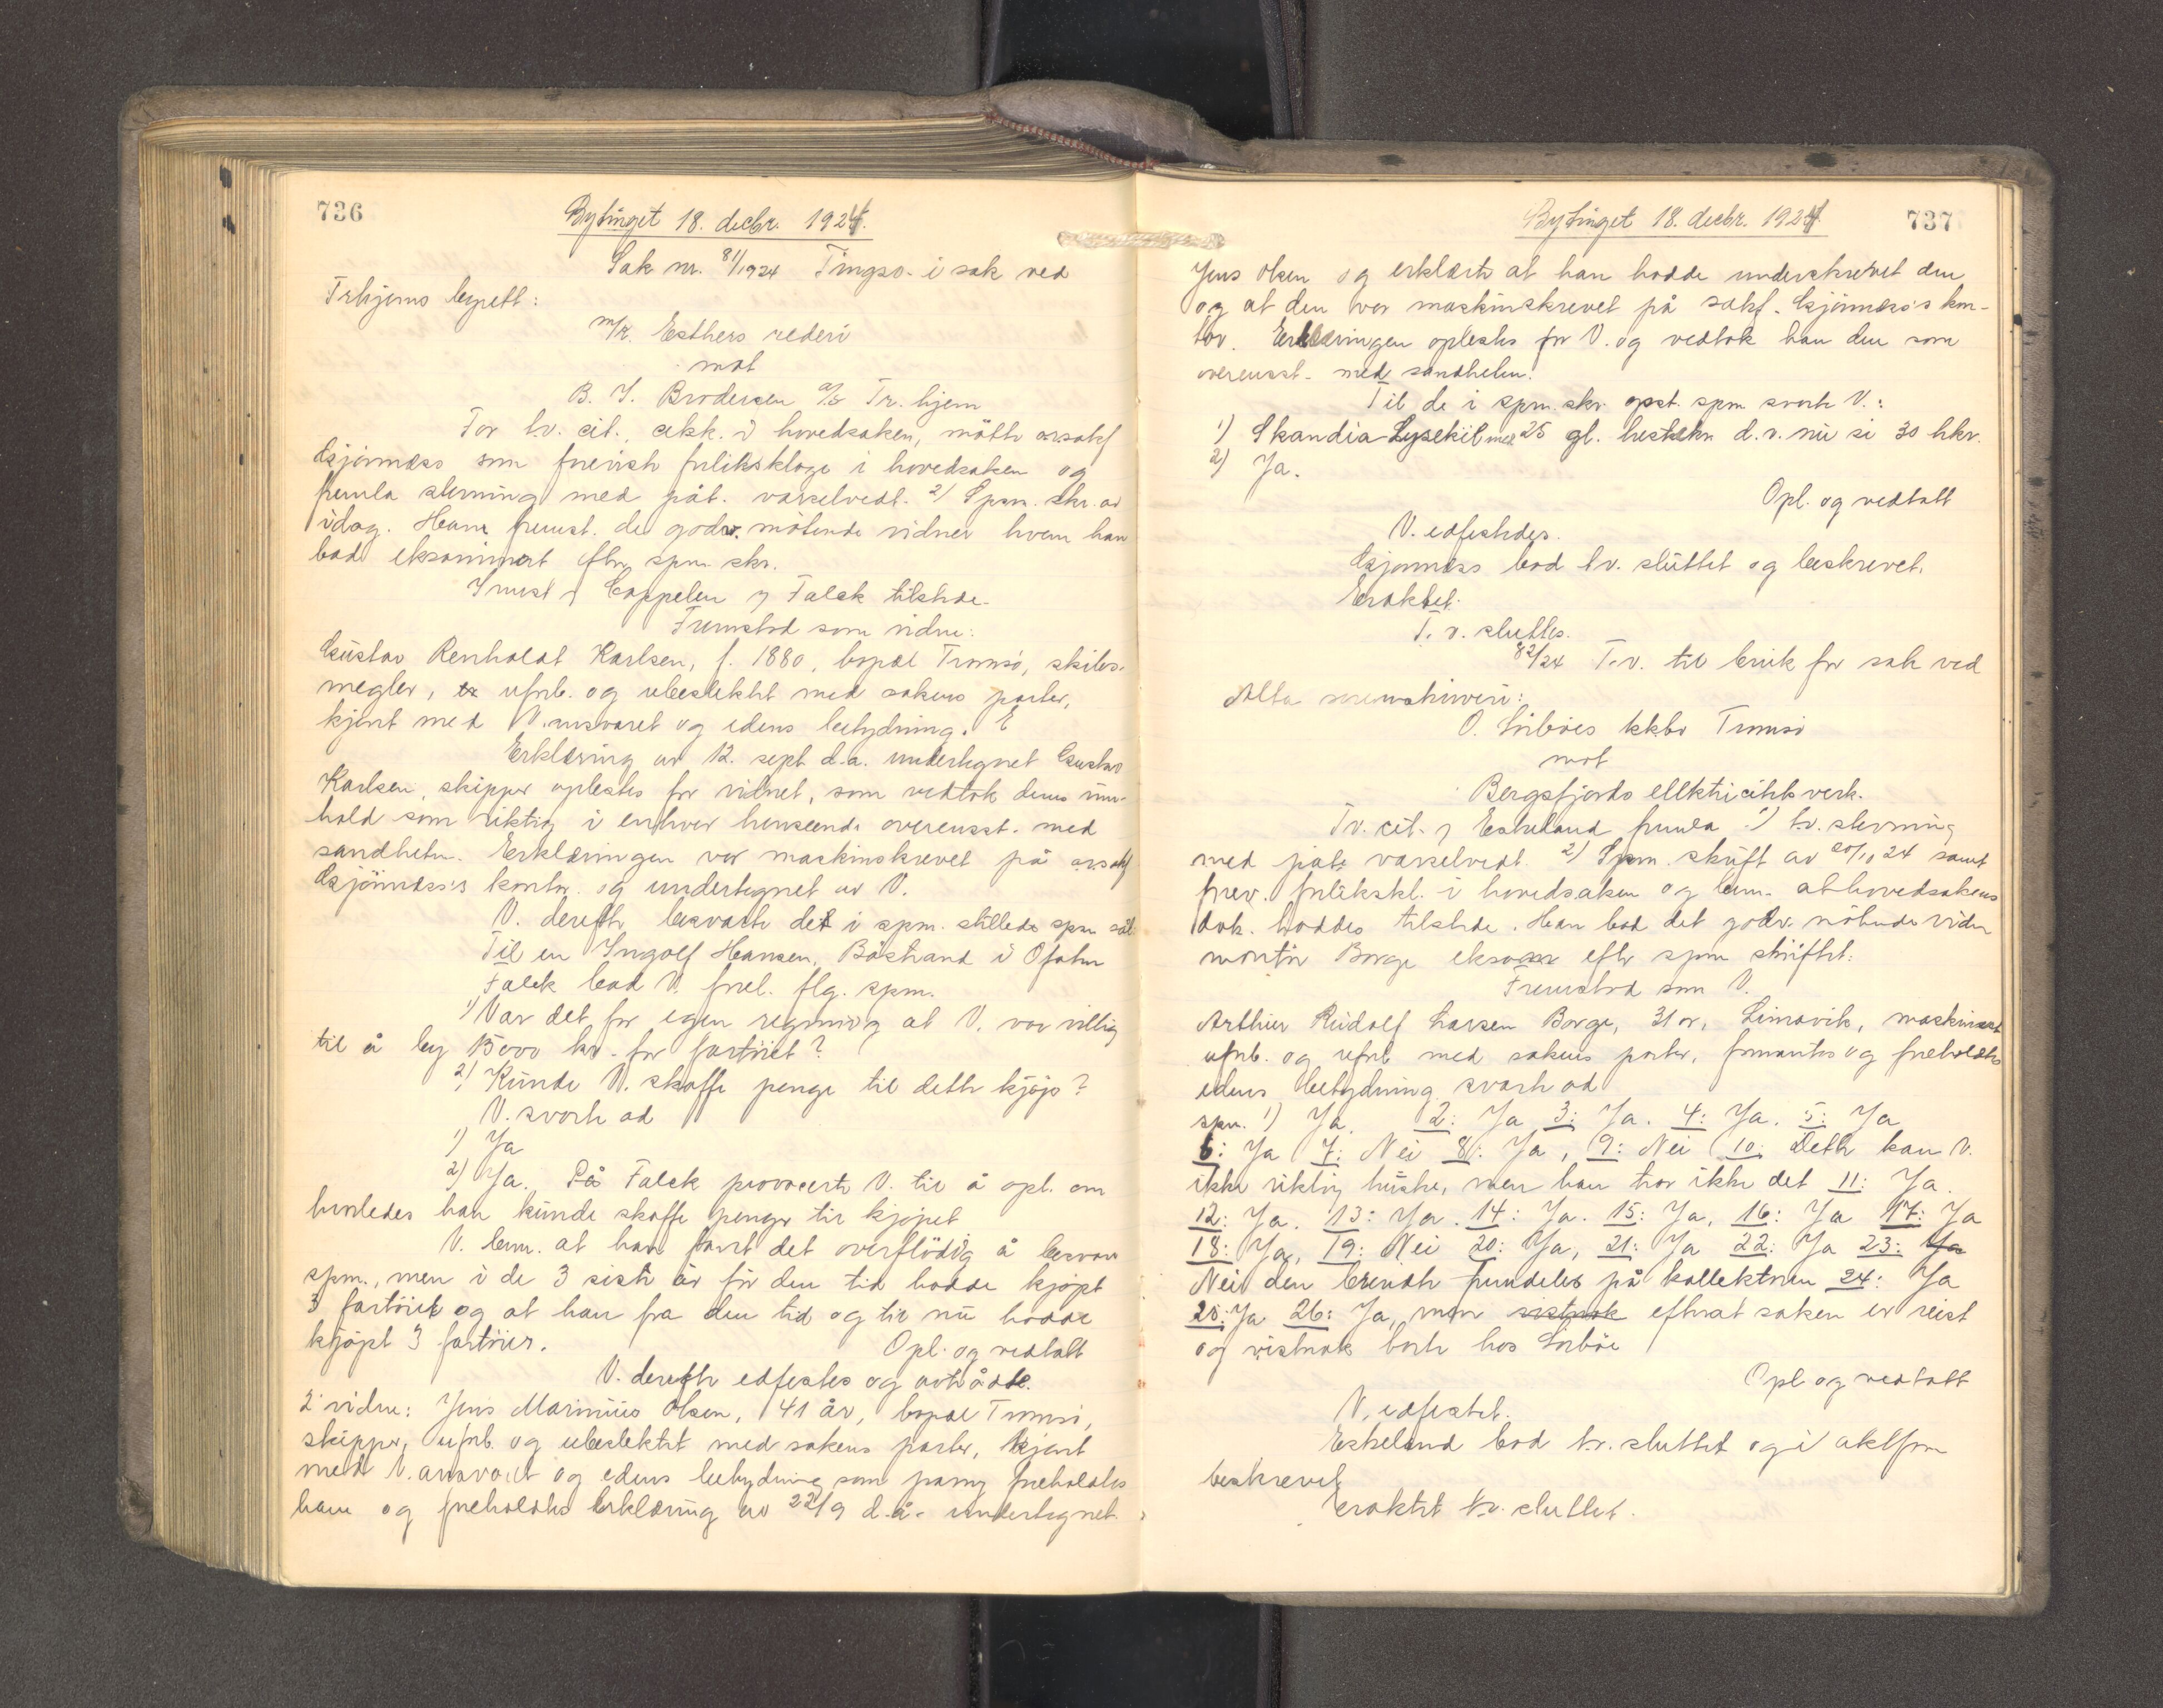 736
Bytinget 18. decbr. 1924.
Sak nr. 81/1924 Tingsv. i sak ved
Trhjems byrett:
m/k. Esthers rederi
mot
B. I. Brodersen a/s Tr. hjem
For t.v. cit., cikk. i hovedsaken, mötte orsakf
Gjönnæss som frevisth forliksklage i hovedsaken og
fremla stevning med påt. varselvedt. 2) Spm. skr. av
idag. Han fremst. de godv. mötende vidner hvem han
bad eksaminert efter spm. skr.
Coppelen y Falck tilstede.
Fremstod som vidne:
Gustav Renholdt Karlsen, f. 1880, bopæl Tromsö, skibs-
megler, ufrb. og ubeslektet med sakens parter,
kjent med V.ansvaret og edens betydning. E
Erklæring av 12. sept d.a. undertegnet Gustav
Karlsen, skipper oplestes for vidnet, som vedtok dens inn-
hold som riktig i enhver henseende overensst. med
sandheten. Erklæringen var maskinskrevet på orsakf
Gjönnæss's kontor og undertegnet av V.
V. derefter besvarte det i spm. stillede spm sål
Til en Ingolf Hansen, Båstrand i Ofoten
Falck bad V. forel. flg. spm.
1) Var det for egen regning at V. var villig
til å by 15000 kr. for fartöiet?
2) Kunde V. skaffe penge til dette kjöp?
V. svarte ad
1) Ja
2) Ja. På Falck provocerte V. til å opl. om
hvorledes han kunde skaffe penger til kjöpet
V. bem. at han fant det overflödig å besvare
spm., men i de 3 siste år för den tid hadde kjöpt
3 fartöier og at han fra den tid og til nu hadde
kjöpt 3 fartöier.
Opl. og vedtatt
V. derefter edfestes og avtrådte.
2 vidne: Jens Marinius Olsen, 41 år, bopæl Tromsö,
skipper, ufrb. og ubeslektet med sakens parter, kjent
med V.ansvaret og edens betydning som paany foreholdtes
ham og foreholdtes Erklæring av 22/9 d.å. undertegnet
Bytinget 18. decbr. 1924
737
Jens Olsen og erklærte at han hadde underskrevet den
og at den var maskinskrevet på sakf. Gjönnæss's kon-
tor. Erklæringen oplestes for V. og vedtok han den som
overensst. med sandheten.
Til de i spm. skr. opst. spm svarte V.:
1) Skandia Lysekil med 25 gl. hestekr. d.v. nu si 30 hkr.
2) Ja.
Opl. og vedtatt
V. edfestedes.
Gjönnæss bad tv. sluttet og beskrevet.
Eraktet:
T. v. sluttes.
82/24 T.v. til bruk for sak ved
Alta sorenskriveri:
O. Sörböes kkbo Tromsö
mot
Bergsfjords ellektricitetsverk.
Tv. cit. y Eskeland fremla 1) tv. stevning
med påt. varselvedt. 2) Spm. skrift av 20/10 24 samt
frev. forlikskl. i hovedsaken og bem. at hovedsakens
dok. haddes tilstede. Han bad det godv. mötende vidne
montör Borge eksam efter spm skriftet:
Fremstod som V.
Arthur Rudolf Larsen Borge, 31 år, Simavik, maskinist
ufrb. og ufrb med sakens parter, formantes og foreholdtes
edens betydning svarte ad
spm. 1) Ja. 2: Ja 3: Ja. 4: Ja. 5: Ja
6: Ja 7: Nei 8: Ja, 9: Nei 10: Dette kan V.
ikke riktig huske, men han tror ikke det 11: Ja.
12: Ja. 13: Ja. 14: Ja. 15: Ja, 16: Ja 17: Ja
18: Ja, 19: Nei 20: Ja, 21: Ja 22: Ja 23: Ja
Nei den på kollektoren 24: Ja
25: Ja 26: Ja, men sistnok efterat saken er reist
og vistnok borte hos Sörböe
Opl og vedtatt
V. edfestet.
Eskeland bad tv. sluttet og i aktform
beskrevet
eraktet tv. sluttet.